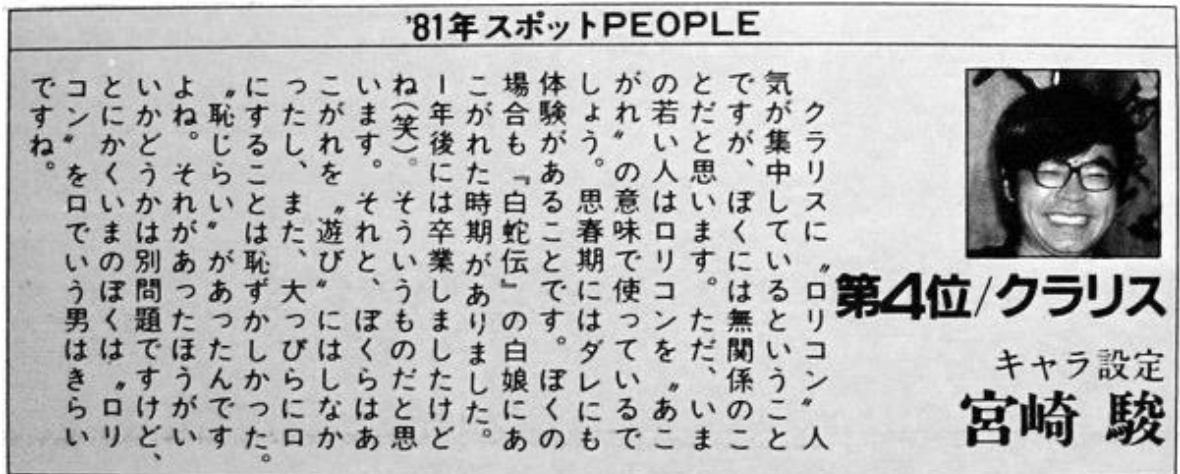 '81年スポットPEOPLE
第4位/クラリス
キャラ設定
宮崎 駿
クラリスに〝ロリコン〟人
気が集中しているということ
ですが、ぼくには無関係のこ
とだと思います。ただ、いま
の若い人はロリコンを〝あこ
がれ〟の意味で使っているで
しょう。思春期にはダレにも
体験があることです。ぼくの
場合も『白蛇伝』の白娘にあ
こがれた時期がありました。
1年後には卒業しましたけど
ね(笑)。そういうものだと思
います。それと、ぼくらはあ
こがれを〝遊び〟にはしなか
ったし、また、大っぴらに口
にすることは恥ずかしかった。
〝恥じらい〟があったんです
よね。それがあったほうがい
いかどうかは別問題ですけど、
とにかくいまのぼくは〝ロリ
コン〟を口でいう男はきらい
ですね。